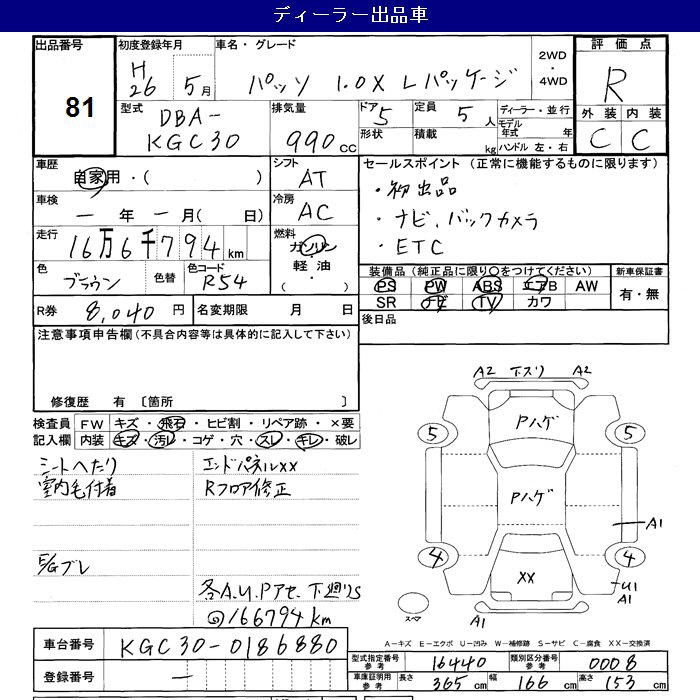 ディーラー出品車
出品番号 81
初度登録年月 H26 5月
車名・グレード パッソ 1.0X Lパッケージ
2WD・4WD
評価点 R
外装 内装
C C
型式 DBA-KGC30
排気量 990cc
ドア 5
形状
定員 5人
積載 kg
ディーラー・並行
モデル年式 年
ハンドル 左・右
車歴 自家用・( )
シフト AT
車検 一年一月( 日)
冷房 AC
走行 16万6千794km
燃料 ガソリン・軽油・( )
色 ブラウン 色替 色コード R54
R券 8,040円 名変期限 月 日
セールスポイント (正常に機能するものに限ります)
・初出品
・ナビ、バックカメラ
・ETC
装備品(純正品に限り○をつけてください)
PS PW ABS エアB AW
SR ナビ TV カワ
新車保証書
有・無
後日品
注意事項申告欄(不具合内容等は具体的に記入して下さい)
修復歴 有 〔箇所 〕
検査員記入欄
FW キズ・飛石・ヒビ割・リペア跡・×要
内装 キズ・汚レ・コゲ・穴・スレ・キレ・破レ
シートヘたり
室内毛付着
E/Gブレ
エンドパネルXX
Rフロア修正
各A.U.Pアセ.下廻りS
@166794km
A2 下スリ A2
Pハゲ
5 5
Pハゲ
A1
4 4
XX
U1
A1
スペア
A1
A-キズ E-エクボ U-凹み W-補修跡 S-サビ C-腐食 XX-交換済
車台番号 KGC30-0186880
登録番号 一
型式指定番号 参考 16440
類別区分番号 参考 0008
車庫証明用 参考 長さ 365cm 幅 166cm 高さ 153cm